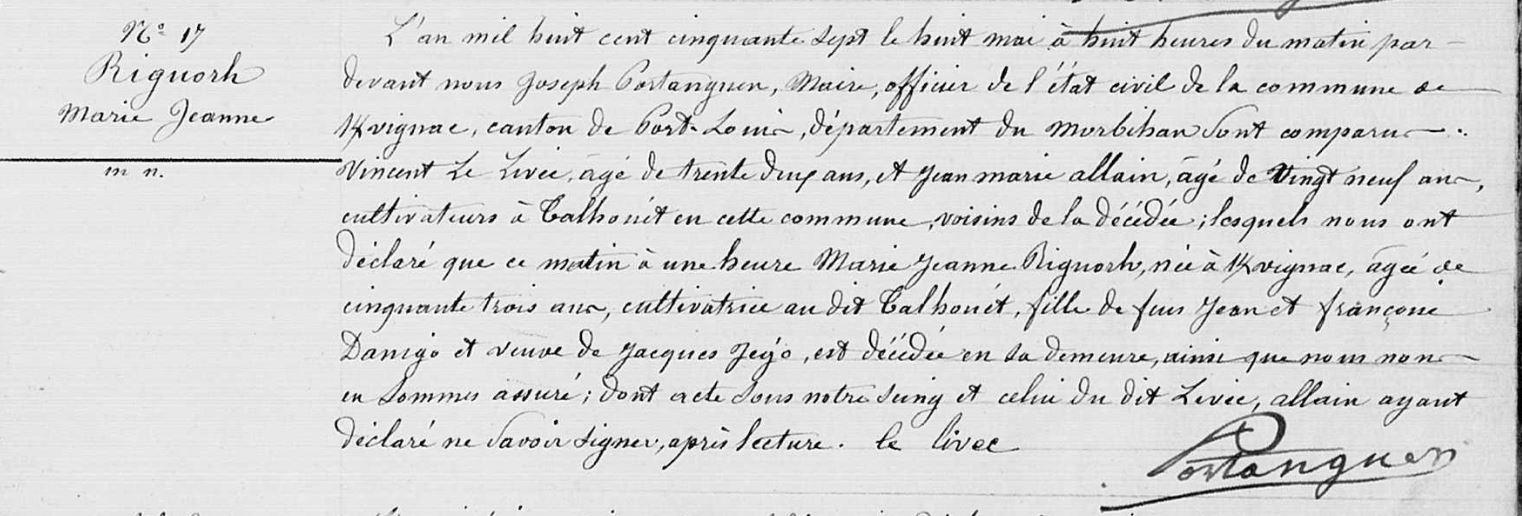 N° 17
Riguorh
Marie Jeanne
m n.
L'an mil huit cent cinquante sept le huit mai à huit heures du matin par-
devant nous Joseph Portanguen, Maire, officier de l'état civil de la commune de
Kvignac, canton de Port-Louis, département du Morbihan sont comparus
Vincent Le Livec, âgé de trente deux ans, et Jean marie allain, âgé de Vingt neuf ans,
cultivateurs à Talhouët en cette commune, voisins de la décédée; lesquels nous ont
déclaré que ce matin à une heure Marie Jeanne Riguorh, née à Kvignac, âgée de
cinquante trois ans, cultivatrice au dit Talhouët, fille de feus Jean et françoise
Danigo et veuve de Jacques Jégo, est décédée en sa demeure, ainsi que nous nous
en sommes assuré; dont acte sous notre seing et celui du dit Livec, allain ayant
déclaré ne savoir signer, après lecture. le livec
Portanguen